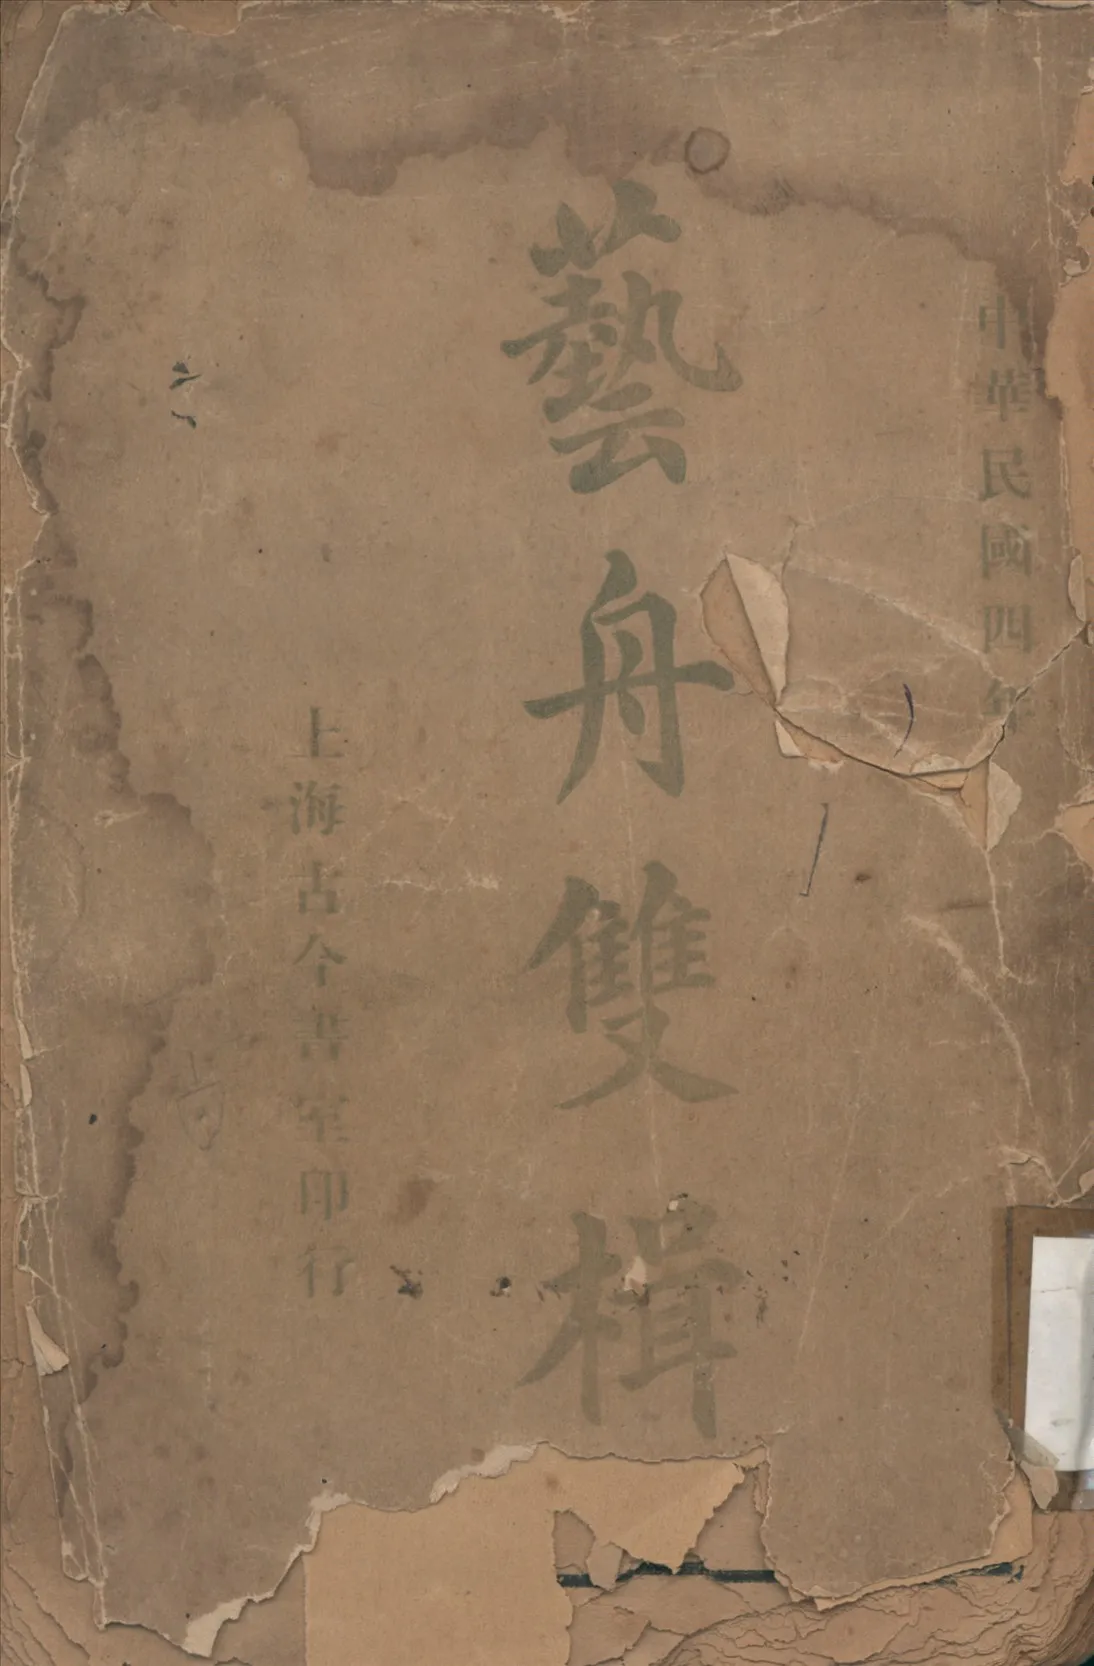 中華民國四年
藝舟雙楫
上海古今書室印行